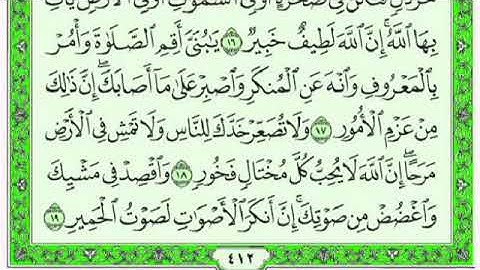 خَرْدَلٍ فَتَكُن فِى صَخْرَةٍ أَوْ فِى ٱلسَّمَٰوَٰتِ أَوْ فِى ٱلْأَرْضِ يَأْتِ
بِهَا ٱللَّهُ ۚ إِنَّ ٱللَّهَ لَطِيفٌ خَبِيرٌ ١٦ يَٰبُنَىَّ أَقِمِ ٱلصَّلَوٰةَ وَأْمُرْ
بِٱلْمَعْرُوفِ وَٱنْهَ عَنِ ٱلْمُنكَرِ وَٱصْبِرْ عَلَىٰ مَآ أَصَابَكَ ۖ إِنَّ ذَٰلِكَ
مِنْ عَزْمِ ٱلْأُمُورِ ١٧ وَلَا تُصَعِّرْ خَدَّكَ لِلنَّاسِ وَلَا تَمْشِ فِى ٱلْأَرْضِ
مَرَحًا ۖ إِنَّ ٱللَّهَ لَا يُحِبُّ كُلَّ مُخْتَالٍ فَخُورٍ ١٨ وَٱقْصِدْ فِى مَشْيِكَ
وَٱغْضُضْ مِن صَوْتِكَ ۚ إِنَّ أَنكَرَ ٱلْأَصْوَٰتِ لَصَوْتُ ٱلْحَمِيرِ ١٩
٤١٢